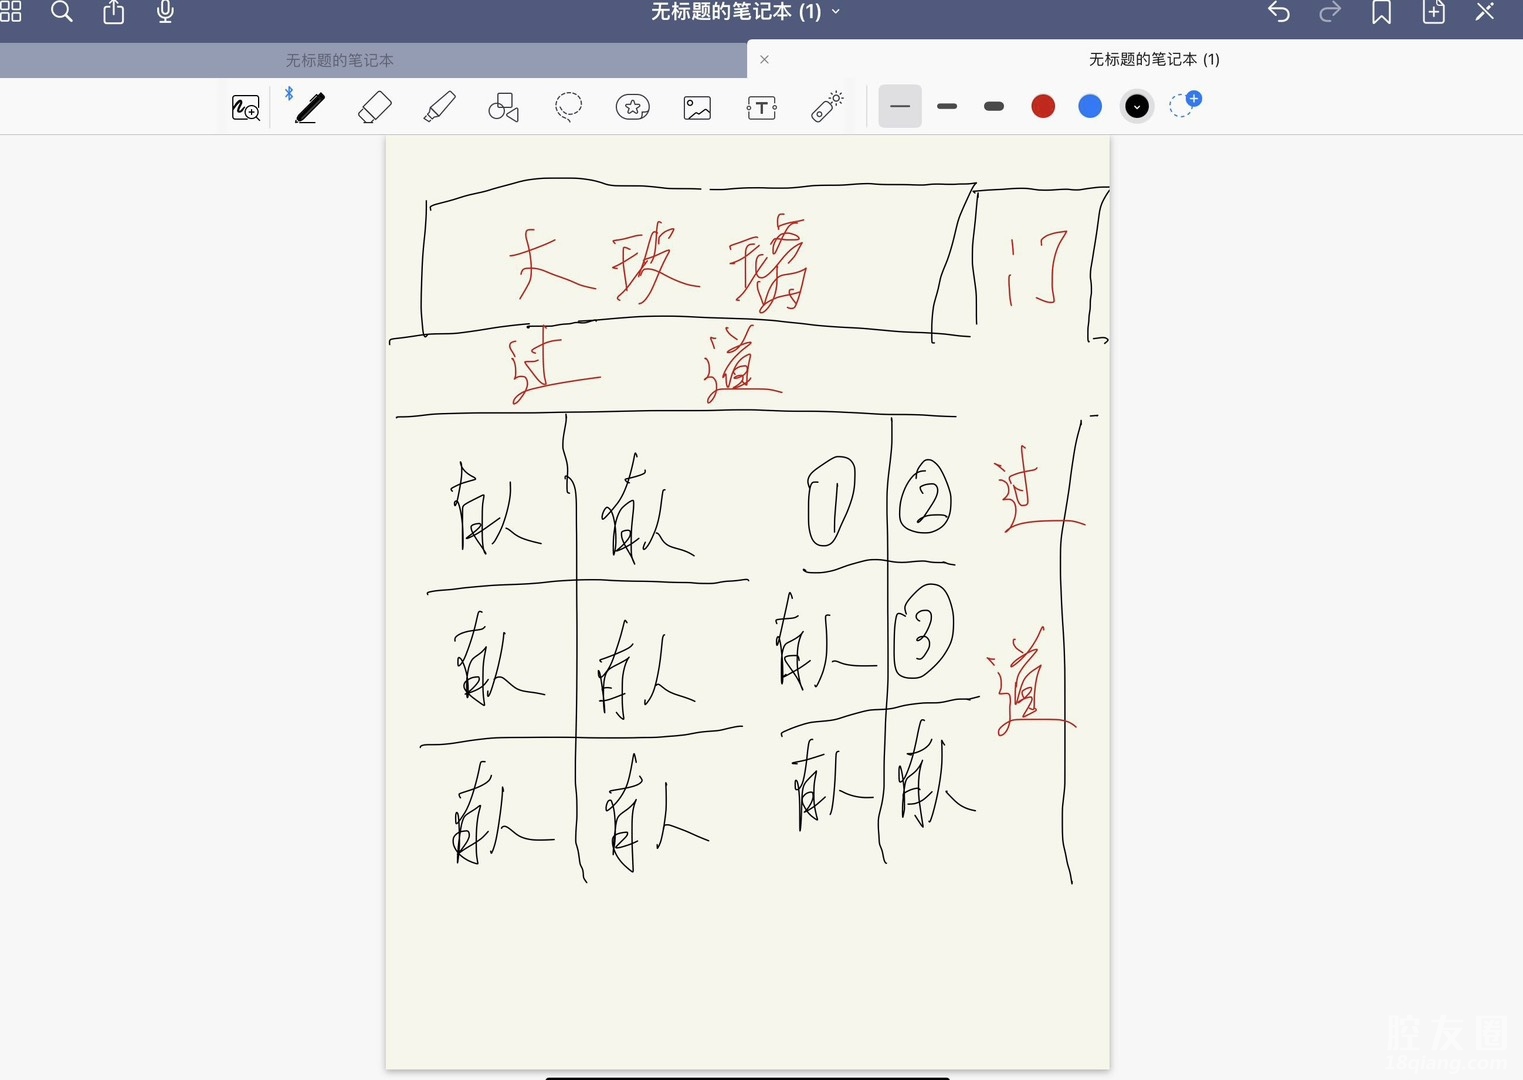 无标题的笔记本 (1)
无标题的笔记本
无标题的笔记本 (1)
大玻璃
门
过道
有人 有人 ① ②
过道
有人 有人 有人 ③
有人 有人 有人 有人
腔友圈
18qiang.com